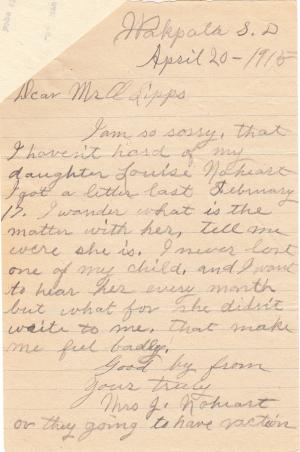 Wakpala S.D
April 20-1915
Dear Mr. O Lipps
I am so sorry, that
I haven't hard of my
daughter Louise Noheart
I got a letter last February
17. I wander what is the
matter with her, tell me
were she is. I never lost
one of my child, and I want
to hear her every month
but what for she didn't
write to me, that make
me feel badly.
Good by from
Yours truly
Mrs J. Noheart
or they going to have vaction